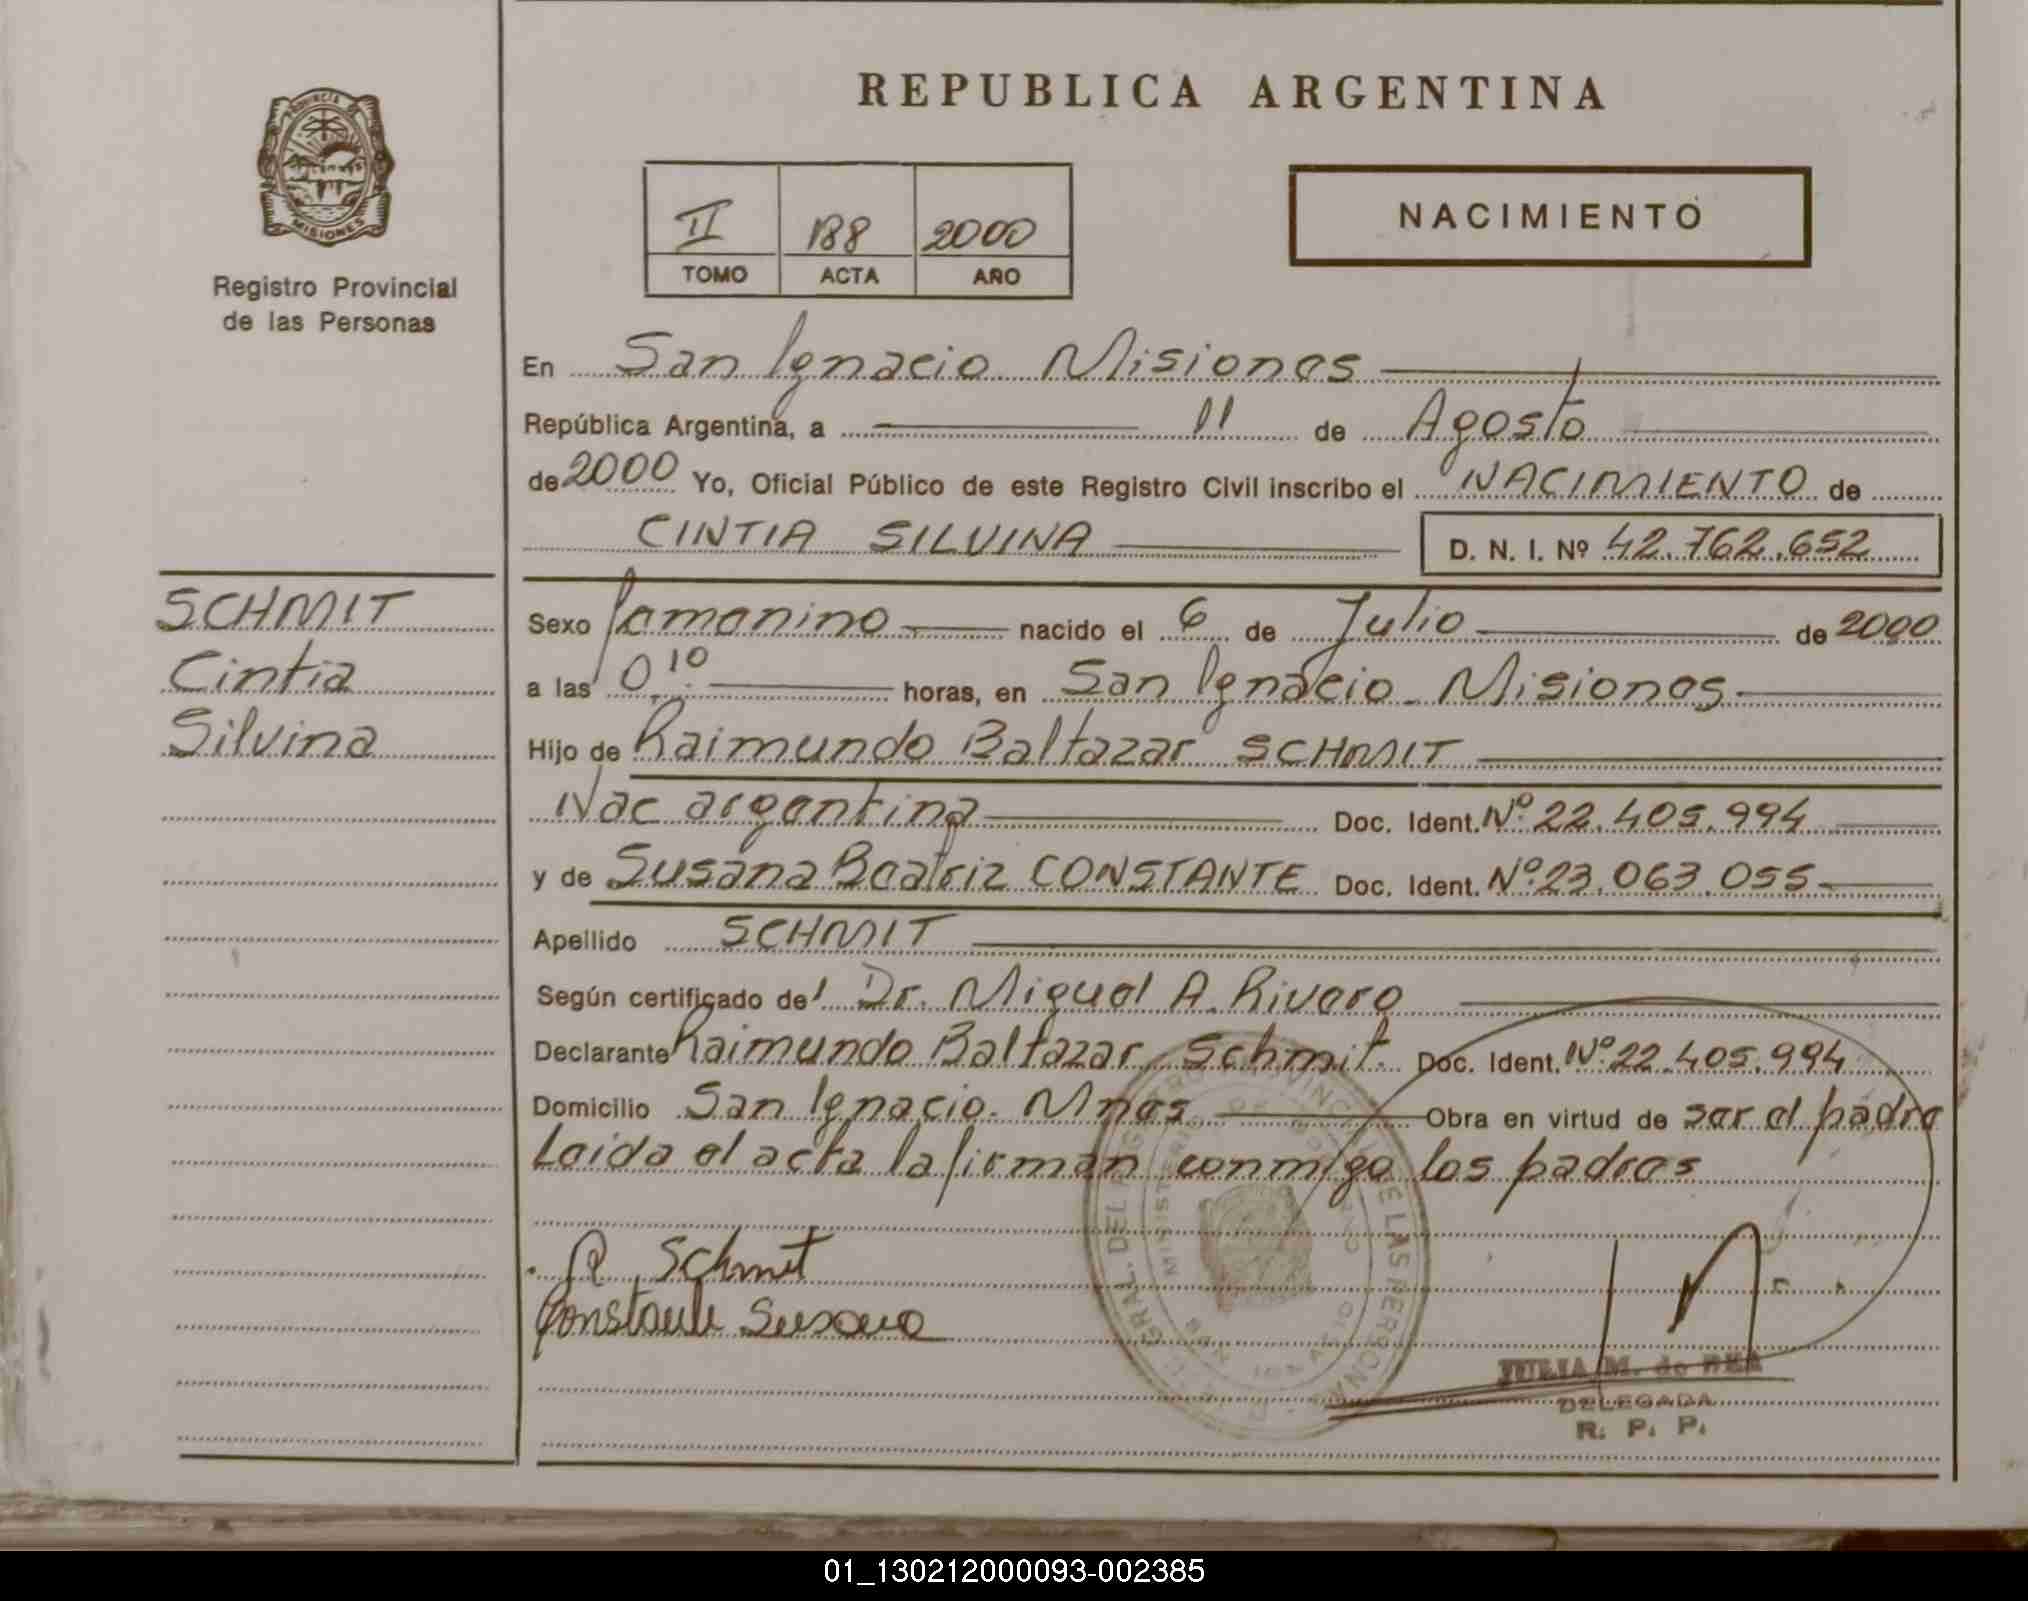 REPUBLICA ARGENTINA
PROVINCIA DE
MISIONES
Registro Provincial
de las Personas
II 188 2000
TOMO ACTA AÑO
NACIMIENTO
En San Ignacio Misiones
República Argentina, a 11 de Agosto
de 2000 Yo, Oficial Público de este Registro Civil inscribo el NACIMIENTO de
CINTIA SILVINA D. N. I. Nº 42.762.652
SCHMIT
Cintia
Silvina
Sexo femenino nacido el 6 de Julio de 2000
a las 0.10 horas, en San Ignacio Misiones
Hijo de Raimundo Baltazar SCHMIT
Nac argentina Doc. Ident. Nº 22.405.994
y de Susana Beatriz CONSTANTE Doc. Ident. Nº 23.063.055
Apellido SCHMIT
Según certificado del Dr. Miguel A. Rivero
Declarante Raimundo Baltazar Schmit. Doc. Ident. Nº 22.405.994
Domicilio San Ignacio. Mnes Obra en virtud de ser el padre
Leida el acta la firman conmigo los padres
R. Schmit
Constante Susana
JULIA M. de REA
DELEGADA
R. P. P.
01_130212000093-002385